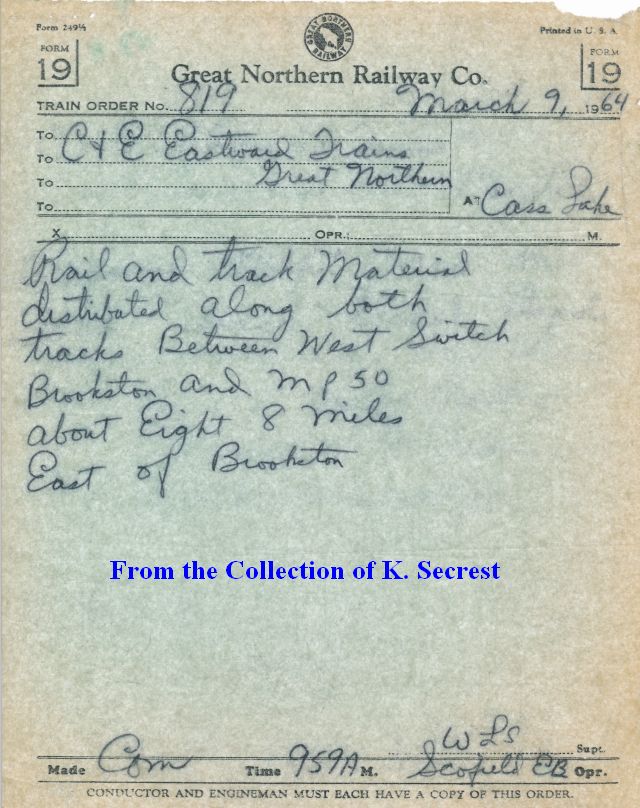 Form 249½
Printed in U. S. A.
FORM
19
GREAT NORTHERN RAILWAY
FORM
19
Great Northern Railway Co.
TRAIN ORDER No. 819 March 9, 1964
To
To C & E Eastward Trains
To Great Northern
To
At Cass Lake
X OPR.: M.
Rail and track Material
distributed along both
tracks Between West Switch
Brookston and MP 50
about Eight 8 miles
East of Brookston
From the Collection of K. Secrest
WLS Supt.
Made Com Time 959A M. Scofield EB Opr.
CONDUCTOR AND ENGINEMAN MUST EACH HAVE A COPY OF THIS ORDER.